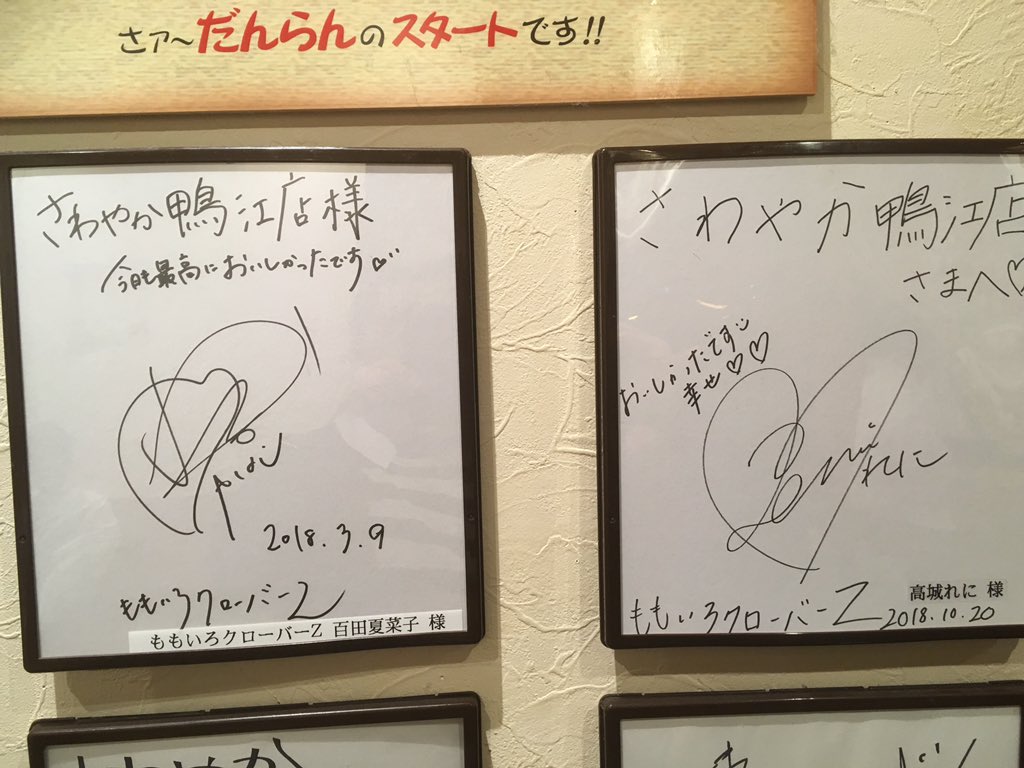 さァ〜だんらんのスタートです!!
さわやか鴨江店様
今日も最高においしかったです♡
2018.3.9
ももいろクローバーZ
ももいろクローバーZ 百田夏菜子 様
さわやか鴨江店
さまへ♡
おいしかったです
幸せ♡♡
れに
高城れに 様
ももいろクローバーZ 2018.10.20
さわやか